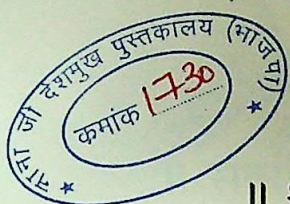 नाना जी देशमुख पुस्तकालय (भाजपा)
कमांक 1730
॥